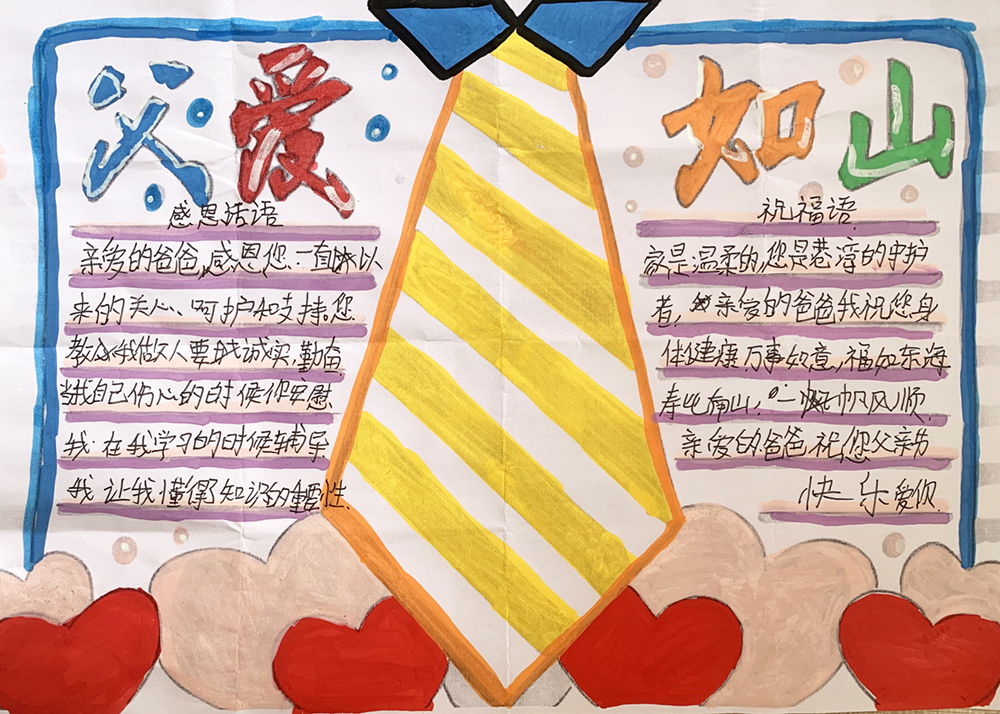 父爱如山
感恩话语
亲爱的爸爸,感恩您一直以
来的关心、呵护和支持。您
教会我做人要诚实,勤奋
当我自己伤心的时候你安慰
我 在我学习的时候辅导
我 让我懂得知识的重要性.
祝福语
家是温柔的,您是港湾的守护
者,亲爱的爸爸我祝您身
体健康,万事如意,福如东海
寿比南山,一帆风顺.
亲爱的爸爸,祝您父亲节
快乐 爱你.